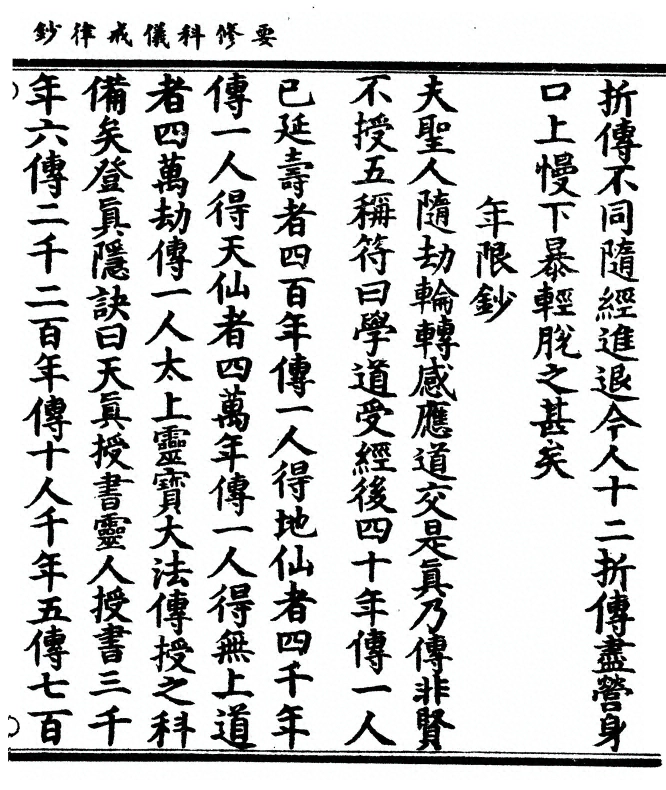 要修科儀戒律鈔
折傳不同隨經進退今人十二折傳盡營身
口上慢下暴輕脫之甚矣
年限鈔
夫聖人隨劫輪轉感應道交是眞乃傳非賢
不授五稱符曰學道受經後四十年傳一人
已延壽者四百年傳一人得地仙者四千年
傳一人得天仙者四萬年傳一人得無上道
者四萬劫傳一人太上靈寶大法傳授之科
備矣登眞隱訣曰天眞授書靈人授書三千
年六傳二千二百年傳十人千年五傳七百